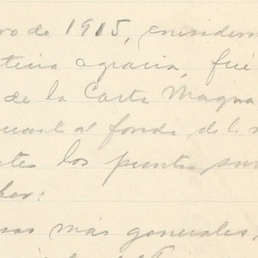 ro de 1915, considera
teria agraria, fué
de la Carta Magna
cuant al fondo de la
tes los puntos
ber:
sas más generales,